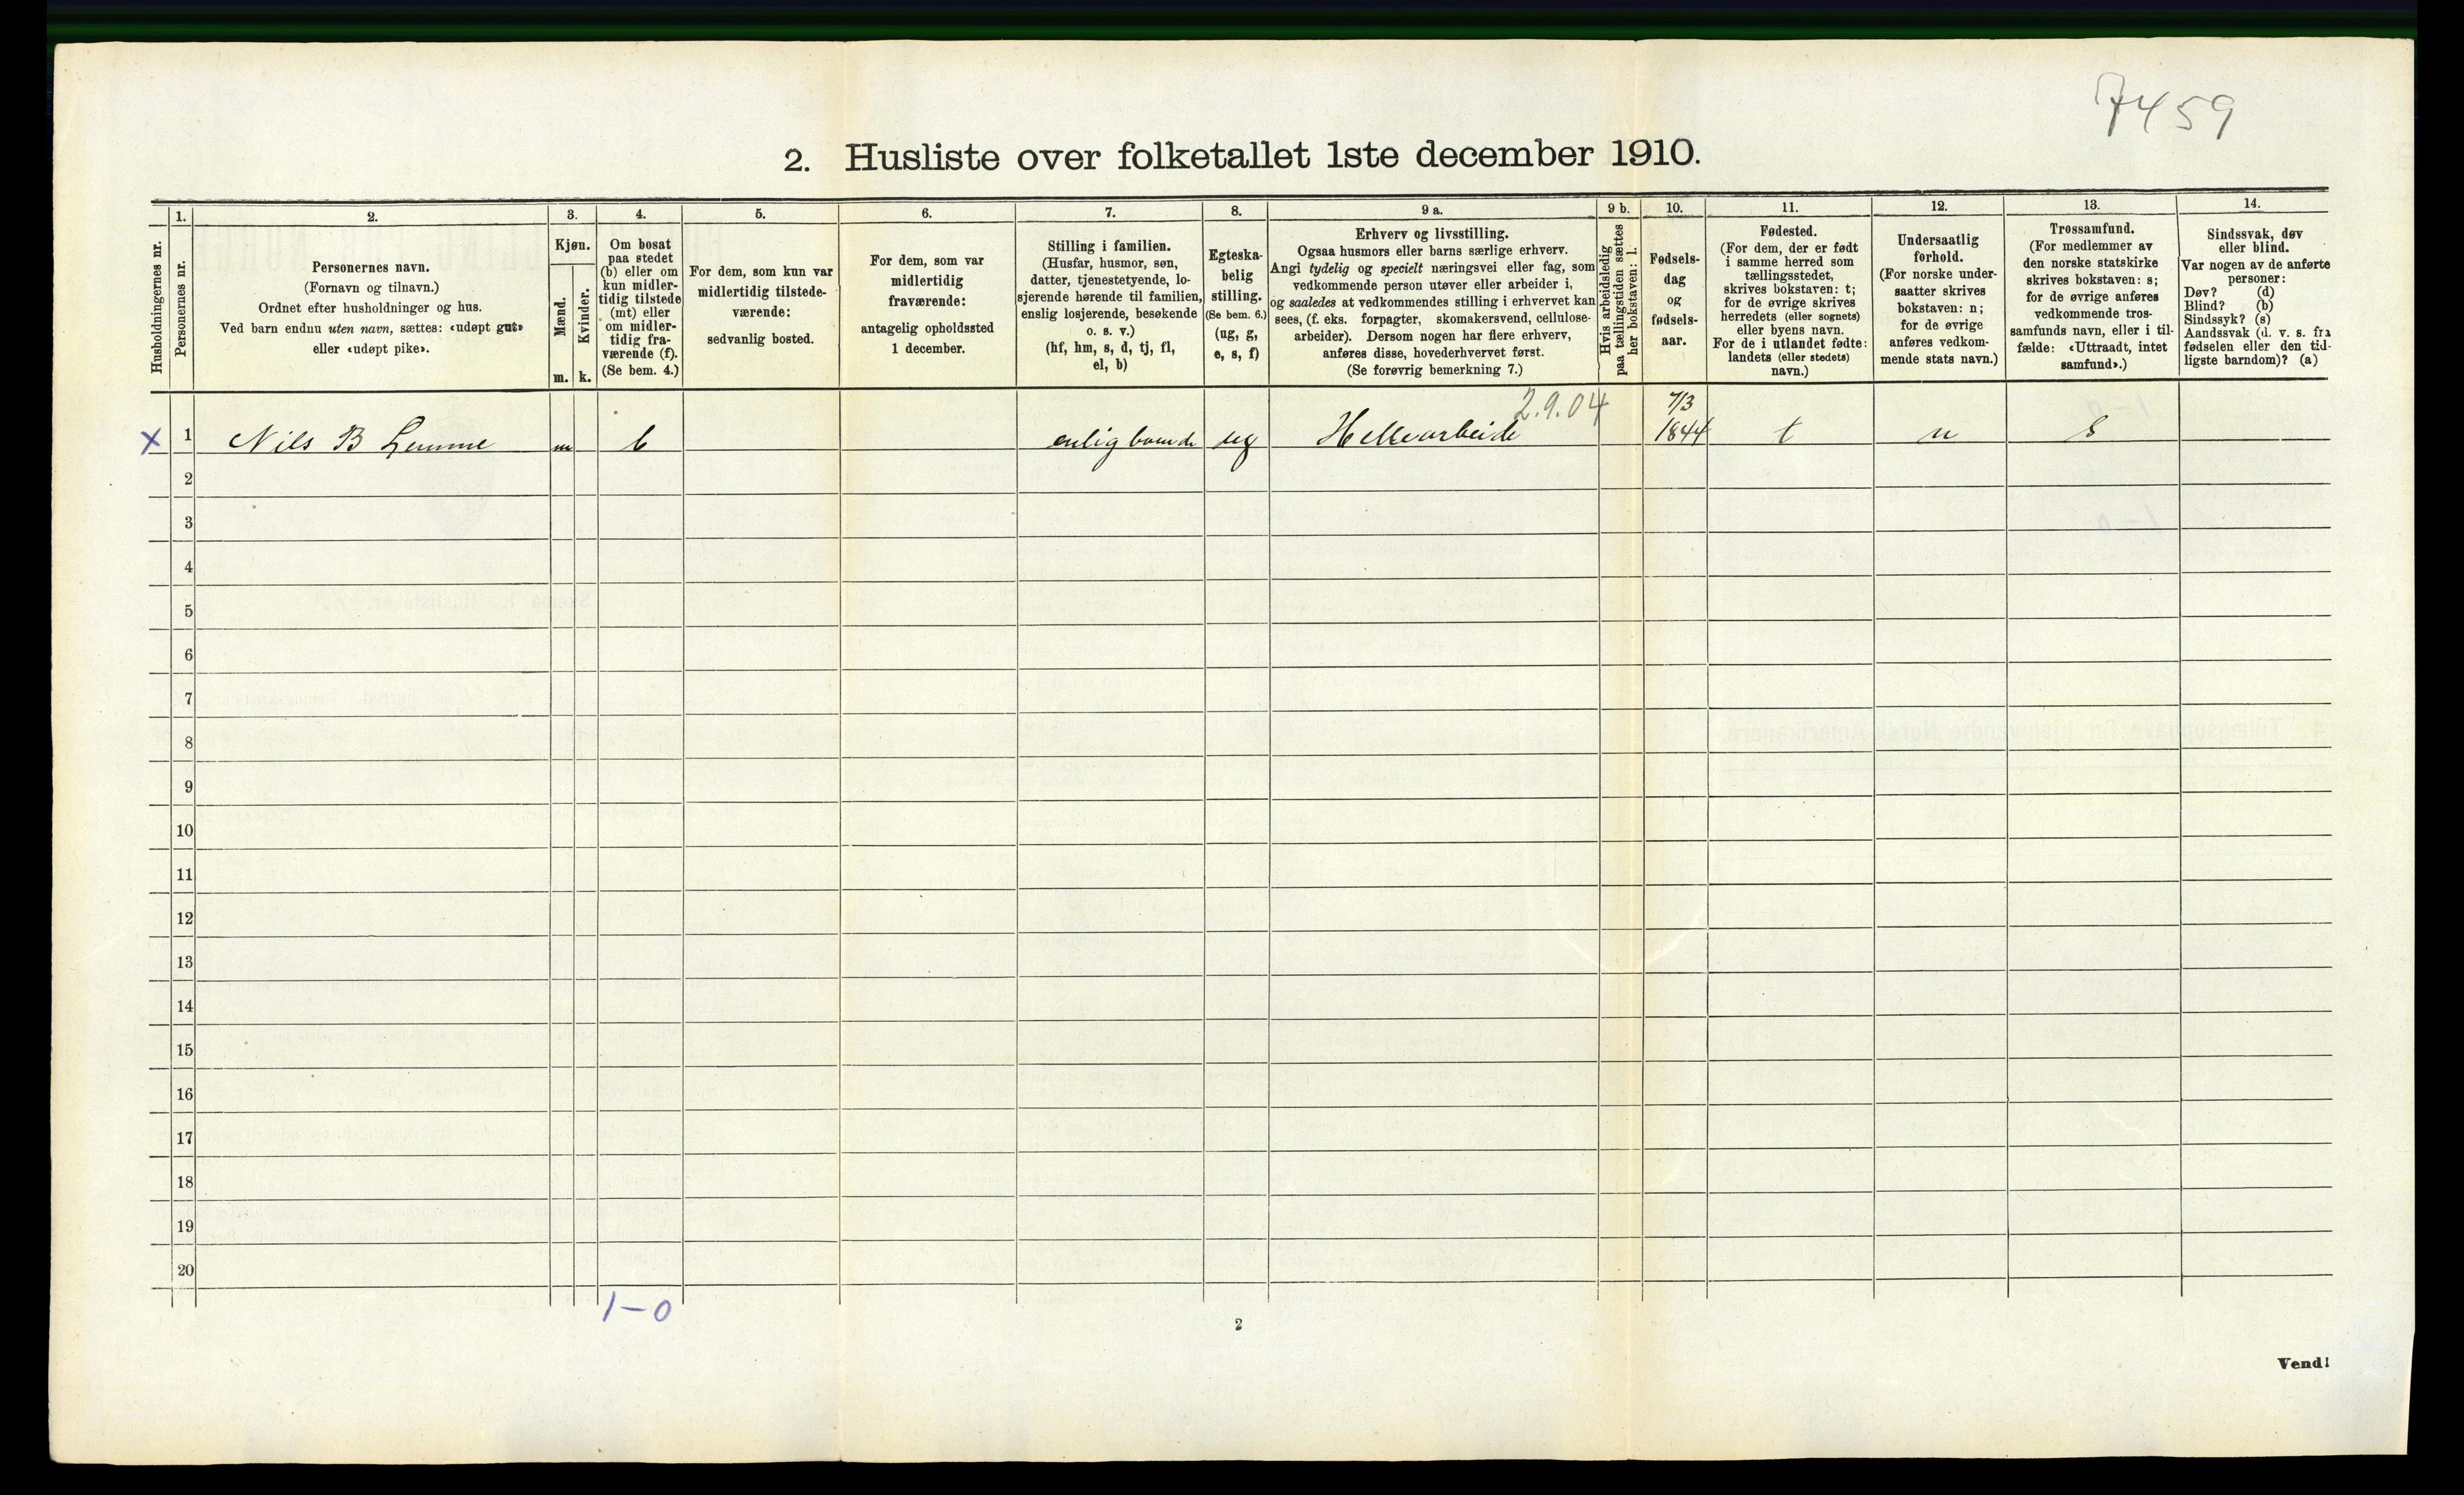 7459
2. Husliste over folketallet 1ste december 1910.
Husholdningernes nr.
1.
Personernes nr.
2.
Personernes navn.
(Fornavn og tilnavn.)
Ordnet efter husholdninger og hus.
Ved barn endnu uten navn, sættes: «udøpt gut»
eller «udøpt pike».
3.
Kjøn.
Mænd.
Kvinder.
m. k.
4.
Om bosat
paa stedet
(b) eller om
kun midler-
tidig tilstede
(mt) eller
om midler-
tidig fra-
værende (f).
(Se bem. 4.)
5.
For dem, som kun var
midlertidig tilstede-
værende:
sedvanlig bosted.
6.
For dem, som var
midlertidig
fraværende:
antagelig opholdssted
1 december.
7.
Stilling i familien.
(Husfar, husmor, søn,
datter, tjenestetyende, lo-
sjerende hørende til familien,
enslig losjerende, besøkende
o. s. v.)
(hf, hm, s, d, tj, fl,
el, b)
8.
Egteska-
belig
stilling.
(Se bem. 6.)
(ug, g,
e, s, f)
9 a.
Erhverv og livsstilling.
Ogsaa husmors eller barns særlige erhverv.
Angi tydelig og specielt næringsvei eller fag, som
vedkommende person utøver eller arbeider i,
og saaledes at vedkommendes stilling i erhvervet kan
sees, (f. eks. forpagter, skomakersvend, cellulose-
arbeider). Dersom nogen har flere erhverv,
anføres disse, hovederhvervet først.
(Se forøvrig bemerkning 7.)
9 b.
Hvis arbeidsledig
paa tællingstiden sættes
her bokstaven: l.
10.
Fødsels-
dag
og
fødsels-
aar.
11.
Fødested.
(For dem, der er født
i samme herred som
tællingsstedet,
skrives bokstaven: t;
for de øvrige skrives
herredets (eller sognets)
eller byens navn.
For de i utlandet fødte:
landets (eller stedets)
navn.)
12.
Undersaatlig
forhold.
(For norske under-
saatter skrives
bokstaven: n;
for de øvrige
anføres vedkom-
mende stats navn.)
13.
Trossamfund.
(For medlemmer av
den norske statskirke
skrives bokstaven: s;
for de øvrige anføres
vedkommende tros-
samfunds navn, eller i til-
fælde: «Uttraadt, intet
samfund».)
14.
Sindssvak, døv
eller blind.
Var nogen av de anførte
personer:
Døv? (d)
Blind? (b)
Sindssyk? (s)
Aandssvak (d. v. s. fra
fødselen eller den tid-
ligste barndom)? (a)
2.9.04 7/3
X 1 Nils B Lemme m b enlig boende ug Hellearbeide 1844 t n S
2
3
4
5
6
7
8
9
10
11
12
13
14
15
16
17
18
19
20
1-0
2
Vend!